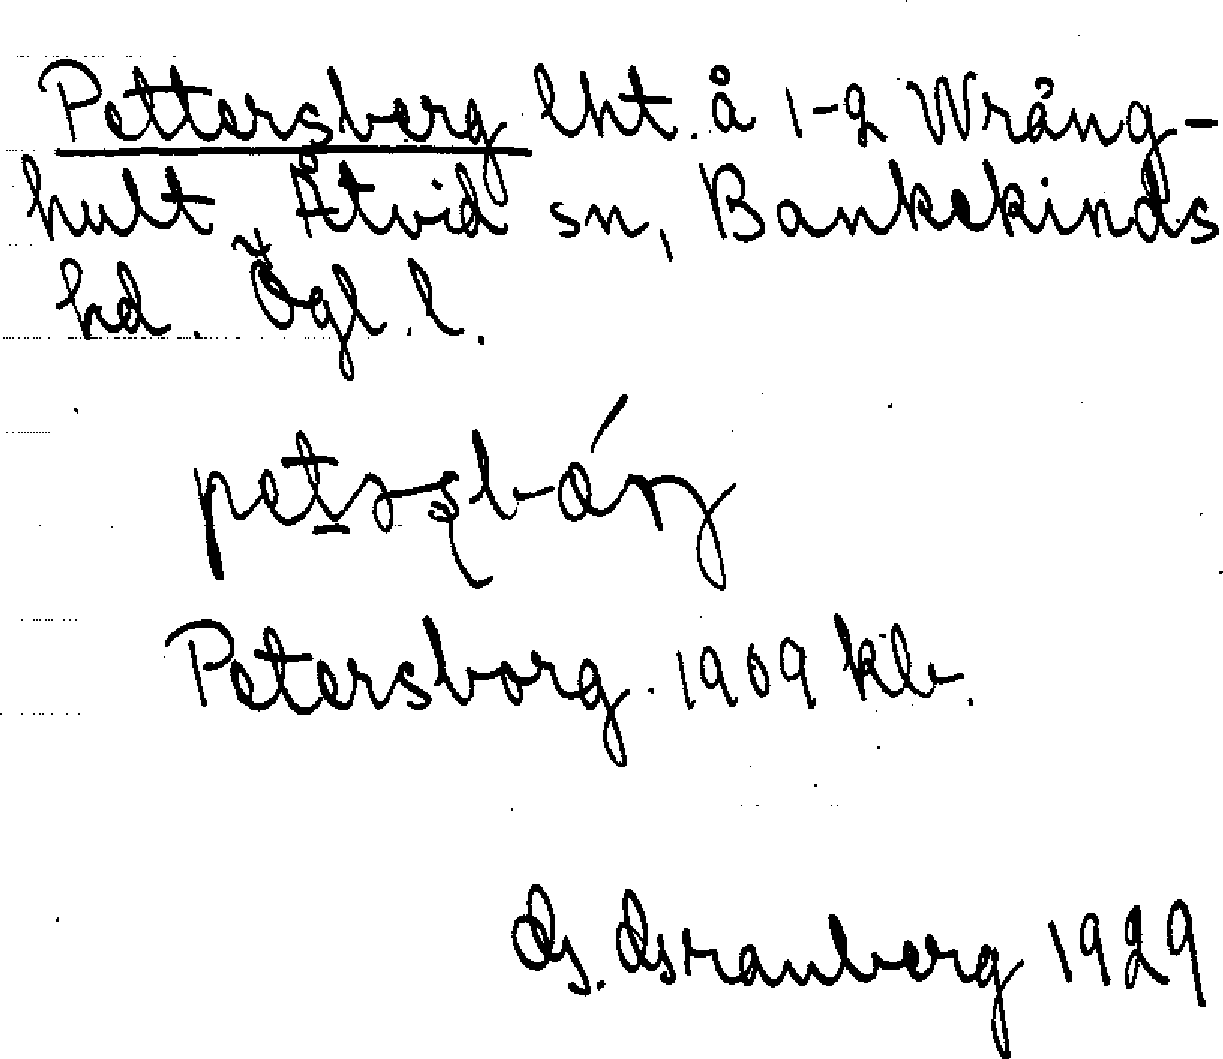 Pettersberg lht. å 1-2 Wrång-
hult, Åtvid sn, Bankekinds
hd. Ögl. l.
Petersborg. 1909 kb.
G. Granberg 1929